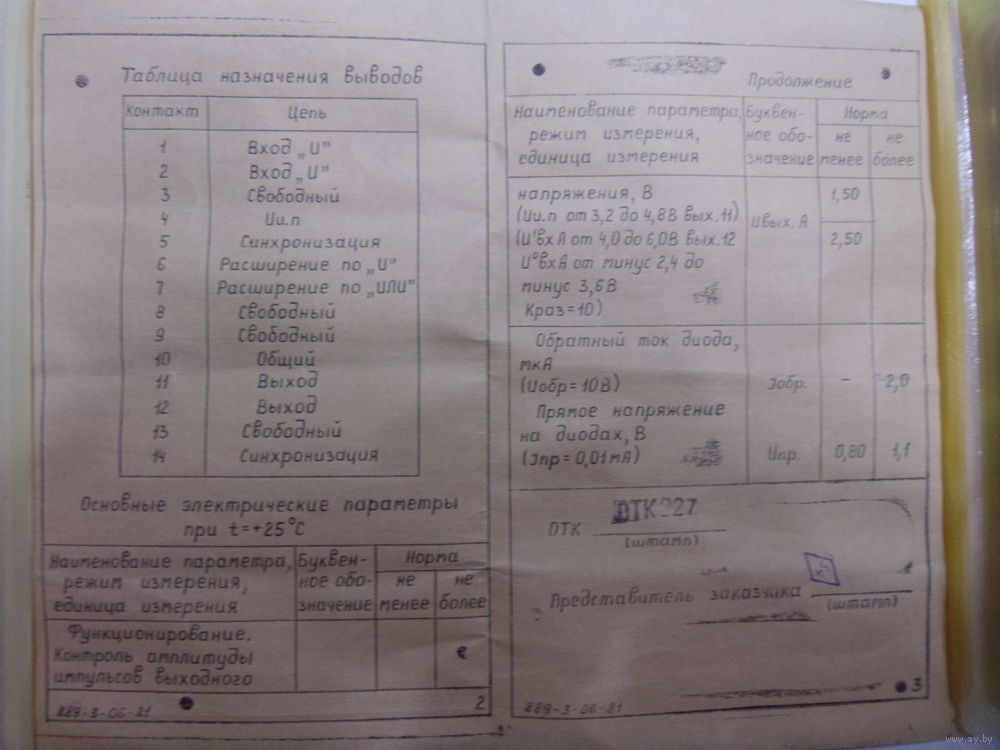 Таблица назначения выводов
Контакт Цепь
1 Вход „И"
2 Вход „И"
3 Свободный
4 Uи.п
5 Синхронизация
6 Расширение по „И"
7 Расширение по „ИЛИ"
8 Свободный
9 Свободный
10 Общий
11 Выход
12 Выход
13 Свободный
14 Синхронизация
Основные электрические параметры
при t=+25°С
Наименование параметра, Буквен- Норма
режим измерения, ное обо- не не
единица измерения значение менее более
Функционирование.
Контроль амплитуды
импульсов выходного
229-3-06-81 2
Продолжение
Наименование параметра, Буквен- Норма
режим измерения, ное обо- не не
единица измерения значение менее более
напряжения, В 1,50
(Uи.п от 3,2 до 4,8В вых.11) Uвых.А
(U¹вхА от 4,0 до 6,0В вых.12 2,50
U⁰вхА от минус 2,4 до
минус 3,6В
Краз=10)
Обратный ток диода,
мкА
(Uобр=10В) Jобр. – 2,0
Прямое напряжение
на диодах, В
(Jпр=0,01мА) Uпр. 0,80 1,1
ОТК ОТК227
(штамп)
Представитель заказчика
(штамп)
229-3-06-81 3
www.ay.by